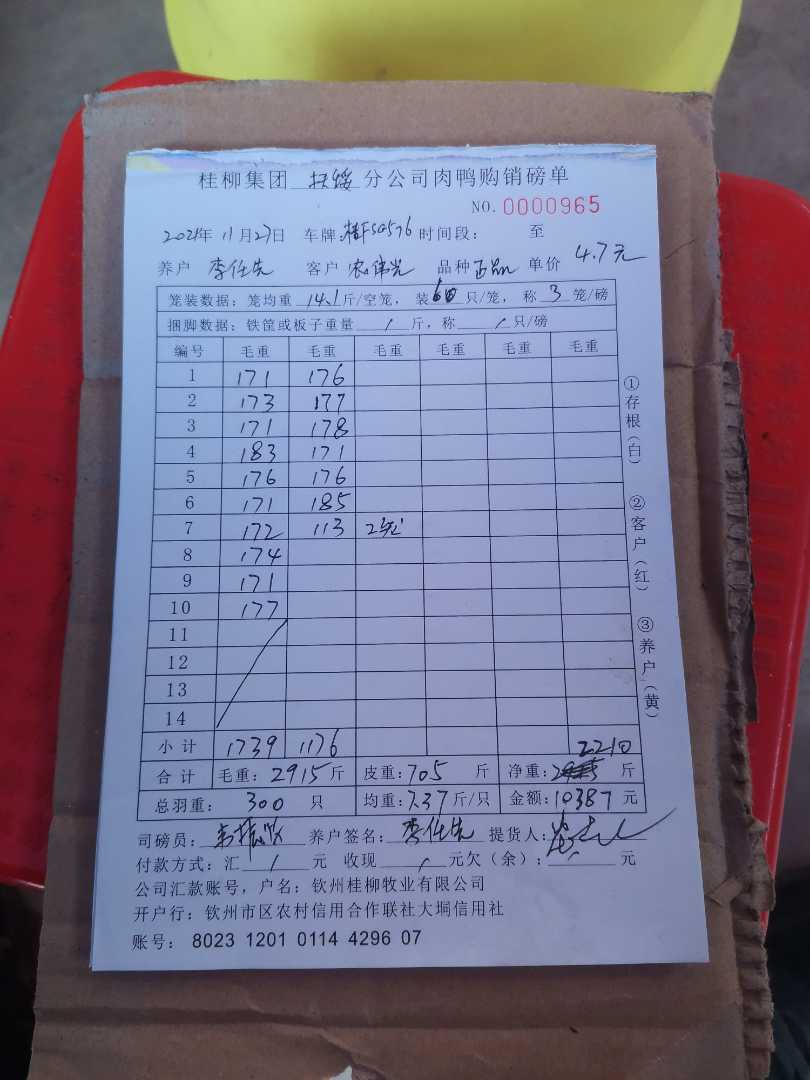 桂柳集团 扶绥 分公司肉鸭购销磅单
NO. 0000965
2021年 11月27日 车牌: 桂FS0576 时间段: 至
养户 李任先 客户 农伟光 品种 正品 单价 4.7元
笼装数据: 笼均重 14.1 斤/空笼, 装 6 只/笼, 称 3 笼/磅
捆脚数据: 铁筐或板子重量 / 斤, 称 / 只/磅
编号 毛重 毛重 毛重 毛重 毛重 毛重
1 171 176
2 173 177
3 171 178
4 183 171
5 176 176
6 171 185
7 172 113 2笼
8 174
9 171
10 177
11
12
13
14
小计 1739 1176 2210
合计 毛重: 2915 斤 皮重: 705 斤 净重: 斤
总羽重: 300 只 均重: 7.37 斤/只 金额: 10387 元
司磅员: 养户签名: 李任先 提货人:
付款方式: 汇 / 元 收现 / 元欠(余): / 元
公司汇款账号, 户名: 钦州桂柳牧业有限公司
开户行: 钦州市区农村信用合作联社大垌信用社
账号: 8023 1201 0114 4296 07
①存根(白)
②客户(红)
③养户(黄)